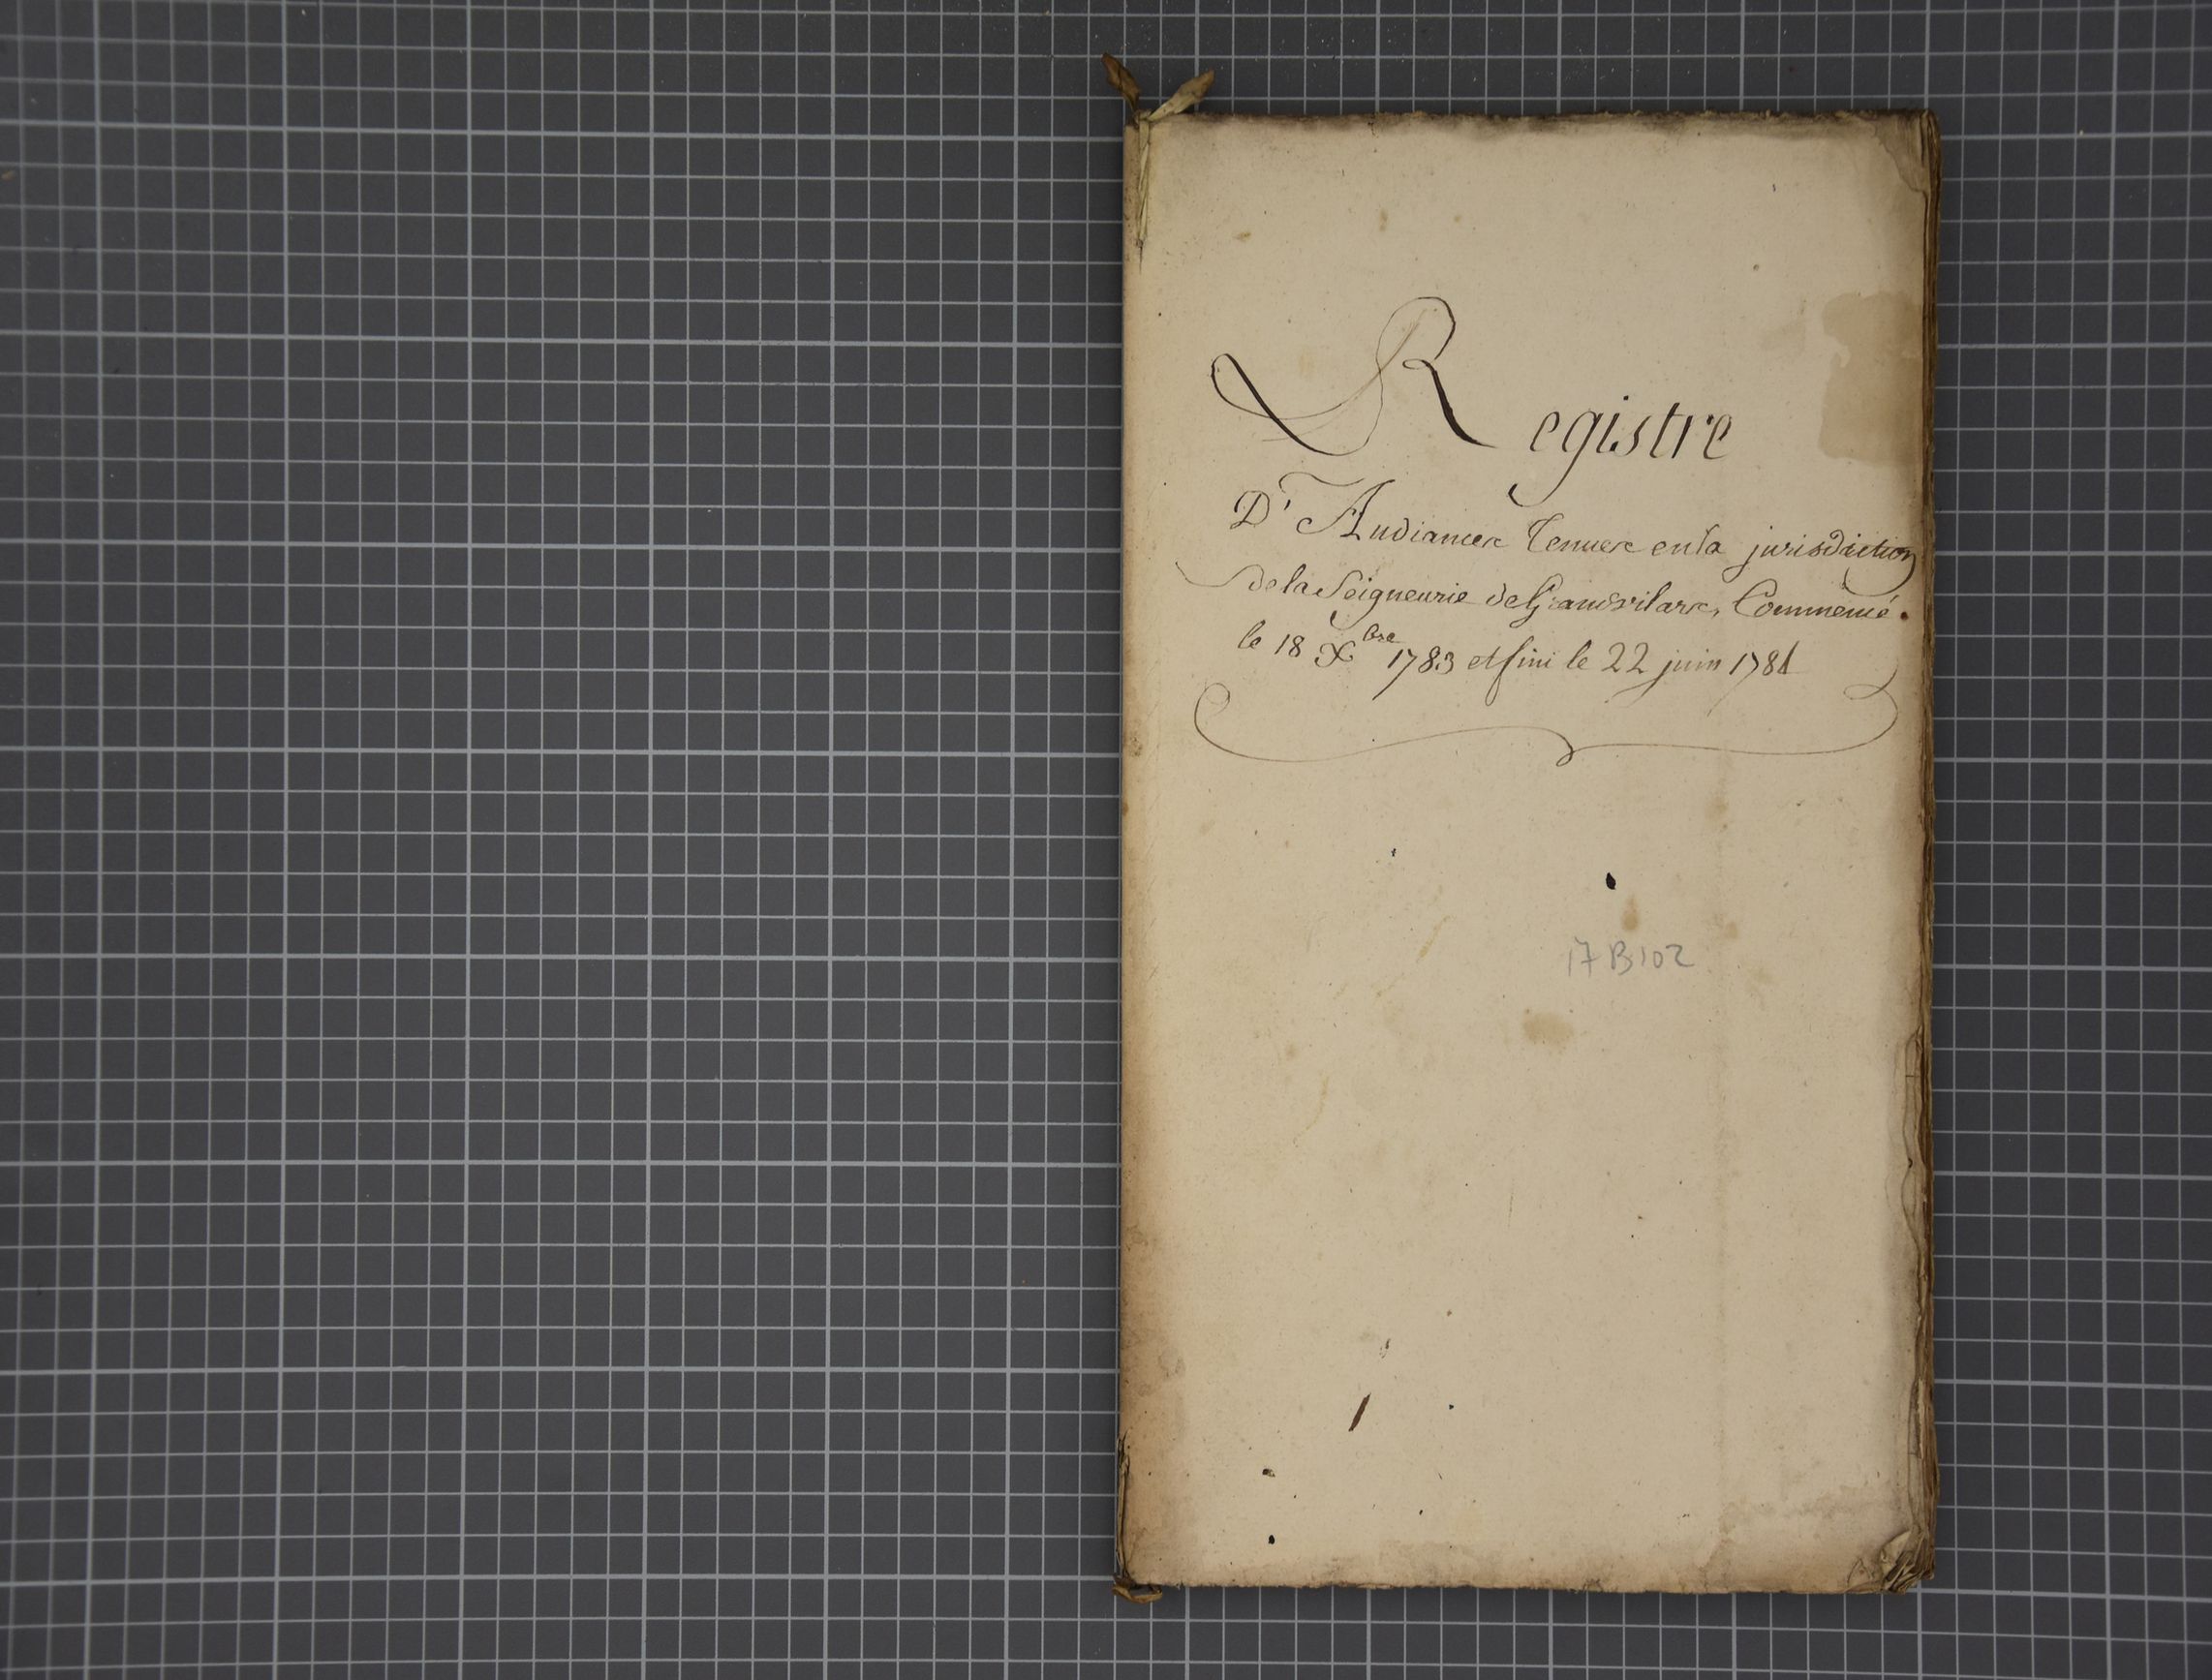 Registre
D'Audiances Tenues en la jurisdiction
de la Seigneurie de Grandvilars, Commencé.
le 18 Xbre 1783 et fini le 22 juin 1784
17 B 102